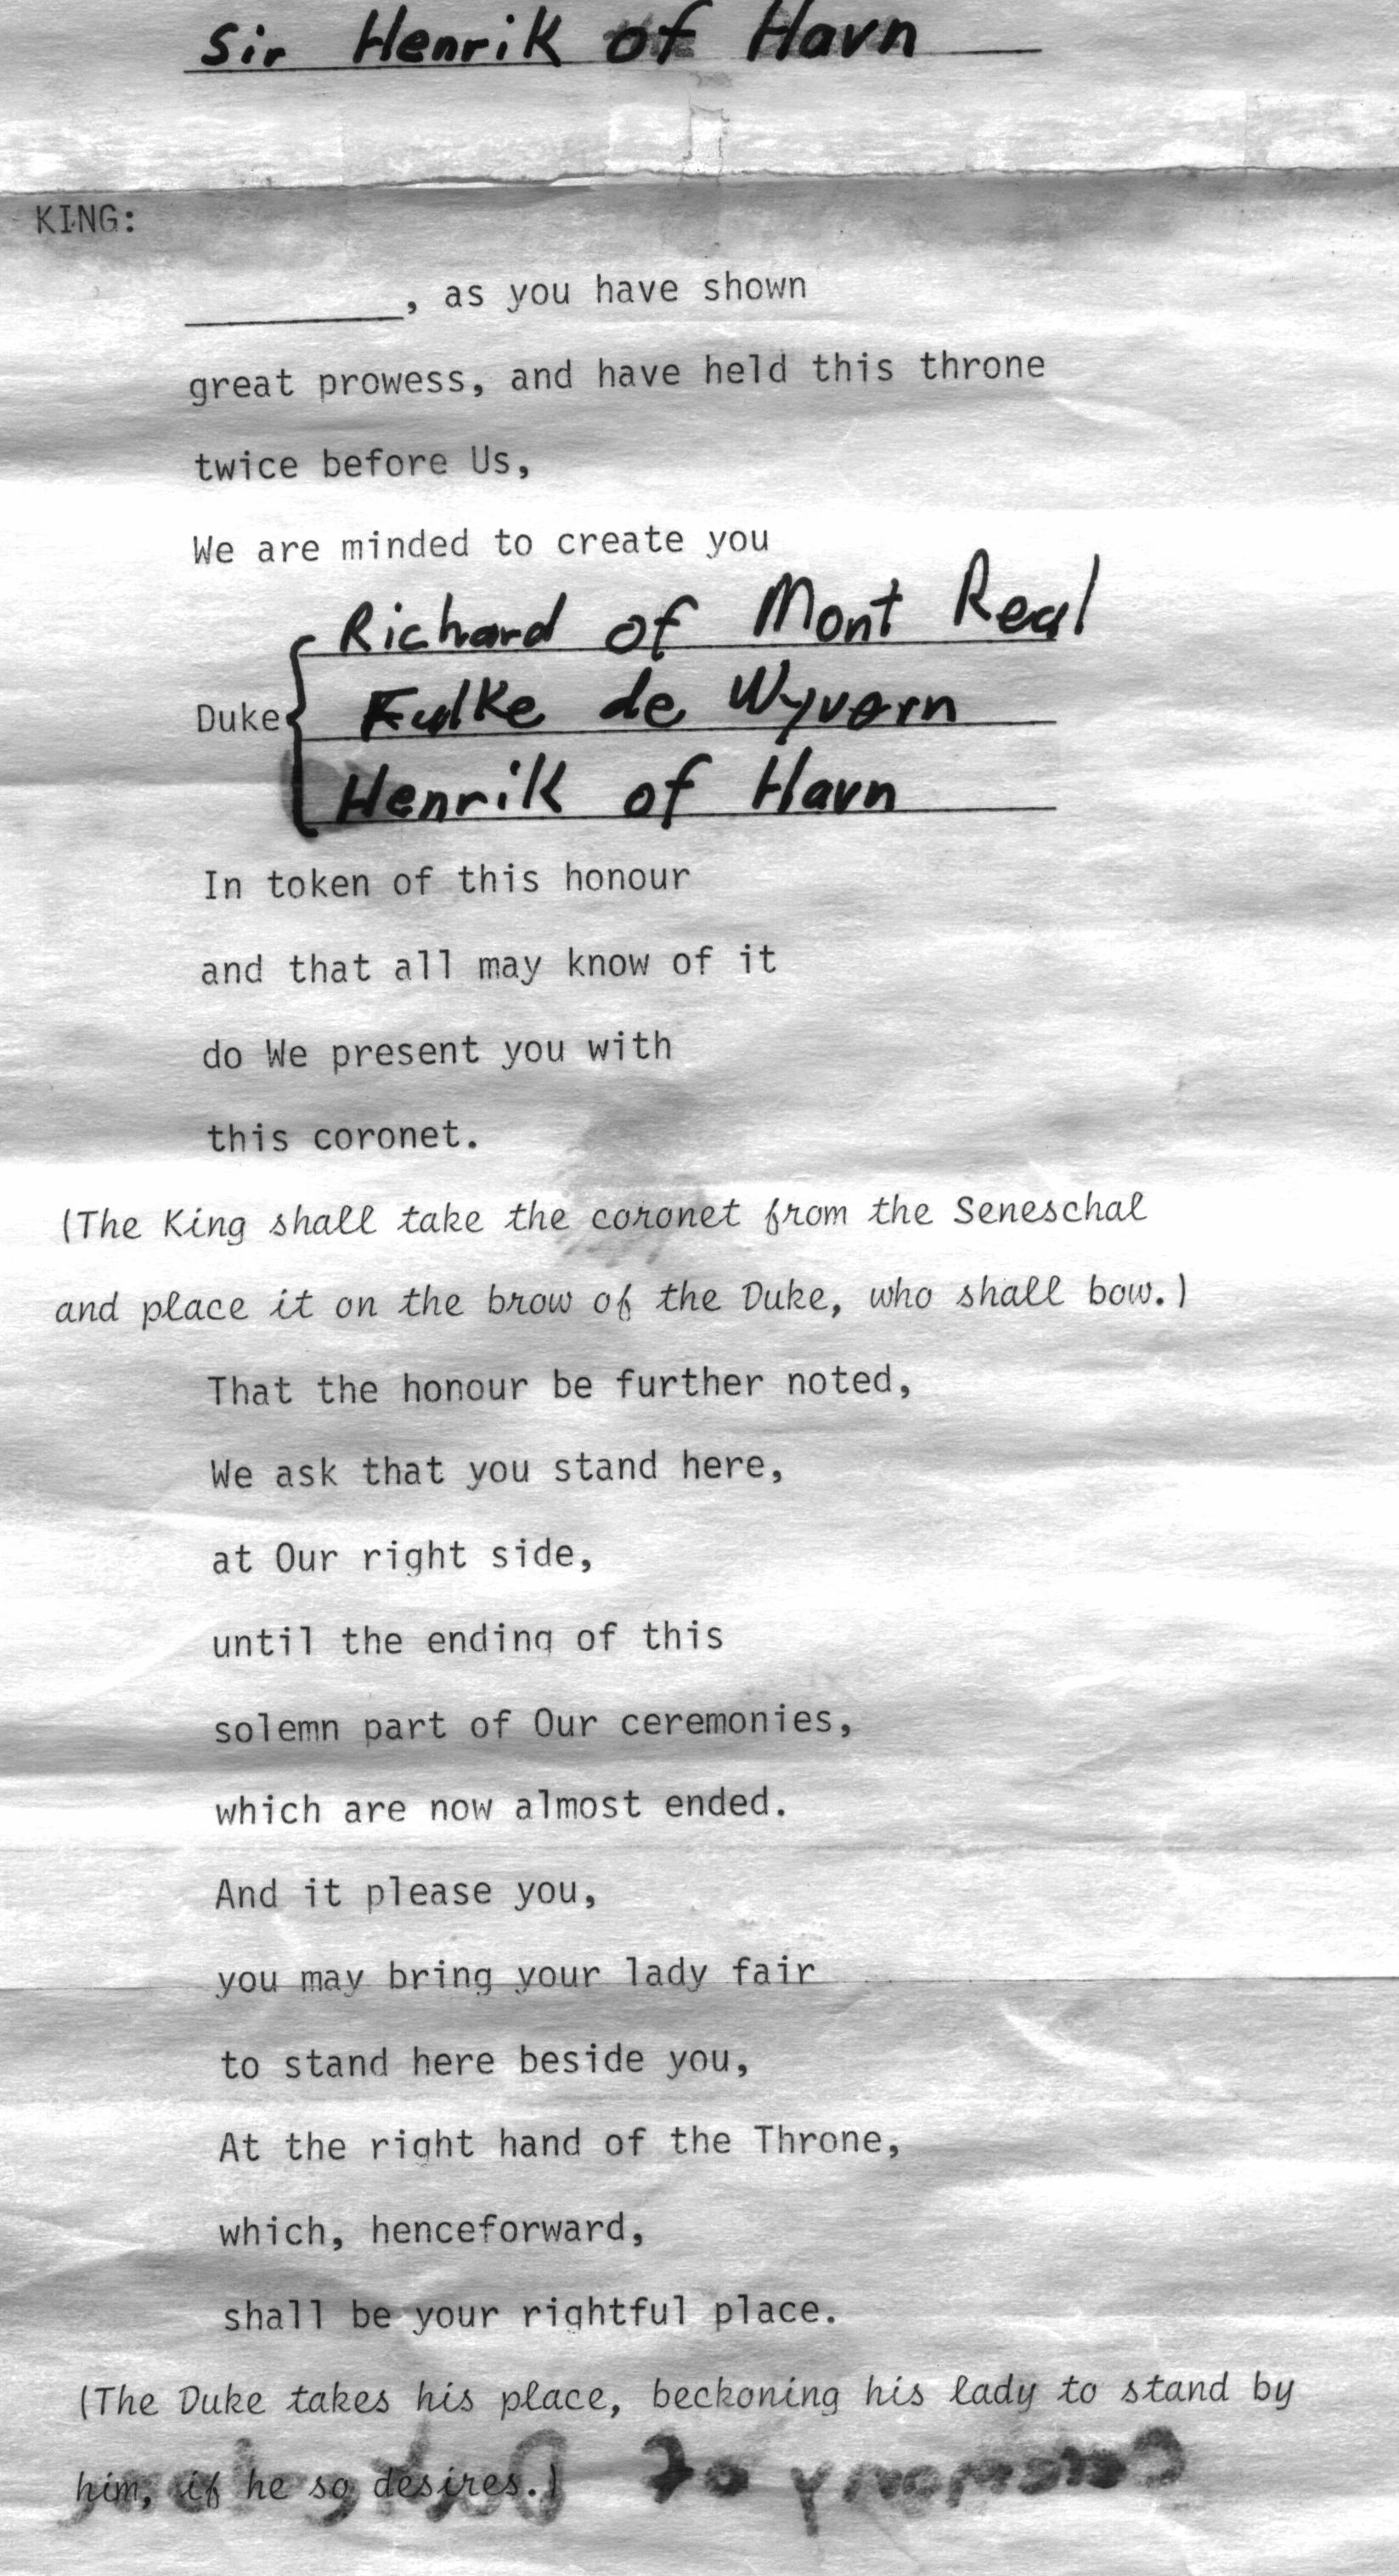 Sir Henrik of Havn
KING:
_________, as you have shown
great prowess, and have held this throne
twice before Us,
We are minded to create you
Richard of Mont Real
Duke Fulke de Wyvern
Henrik of Havn
In token of this honour
and that all may know of it
do We present you with
this coronet.
(The King shall take the coronet from the Seneschal
and place it on the brow of the Duke, who shall bow.)
That the honour be further noted,
We ask that you stand here,
at Our right side,
until the ending of this
solemn part of Our ceremonies,
which are now almost ended.
And it please you,
you may bring your lady fair
to stand here beside you,
At the right hand of the Throne,
which, henceforward,
shall be your rightful place.
(The Duke takes his place, beckoning his lady to stand by
him, if he so desires.)
Ceremony of